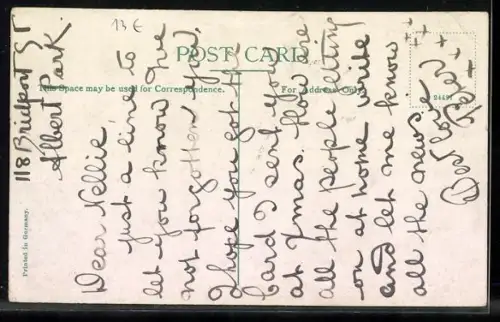 118 Bridport St
Albert Park
Dear Nellie,
Just a line to
let you know I've
not forgotten you.
I hope you got the
Card I sent you
at Xmas. How are
all the people getting
on at home write
and let me know
all the news.
love
13 €
POST CARD
This Space may be used for Correspondence.
For Address Only.
Printed in Germany.